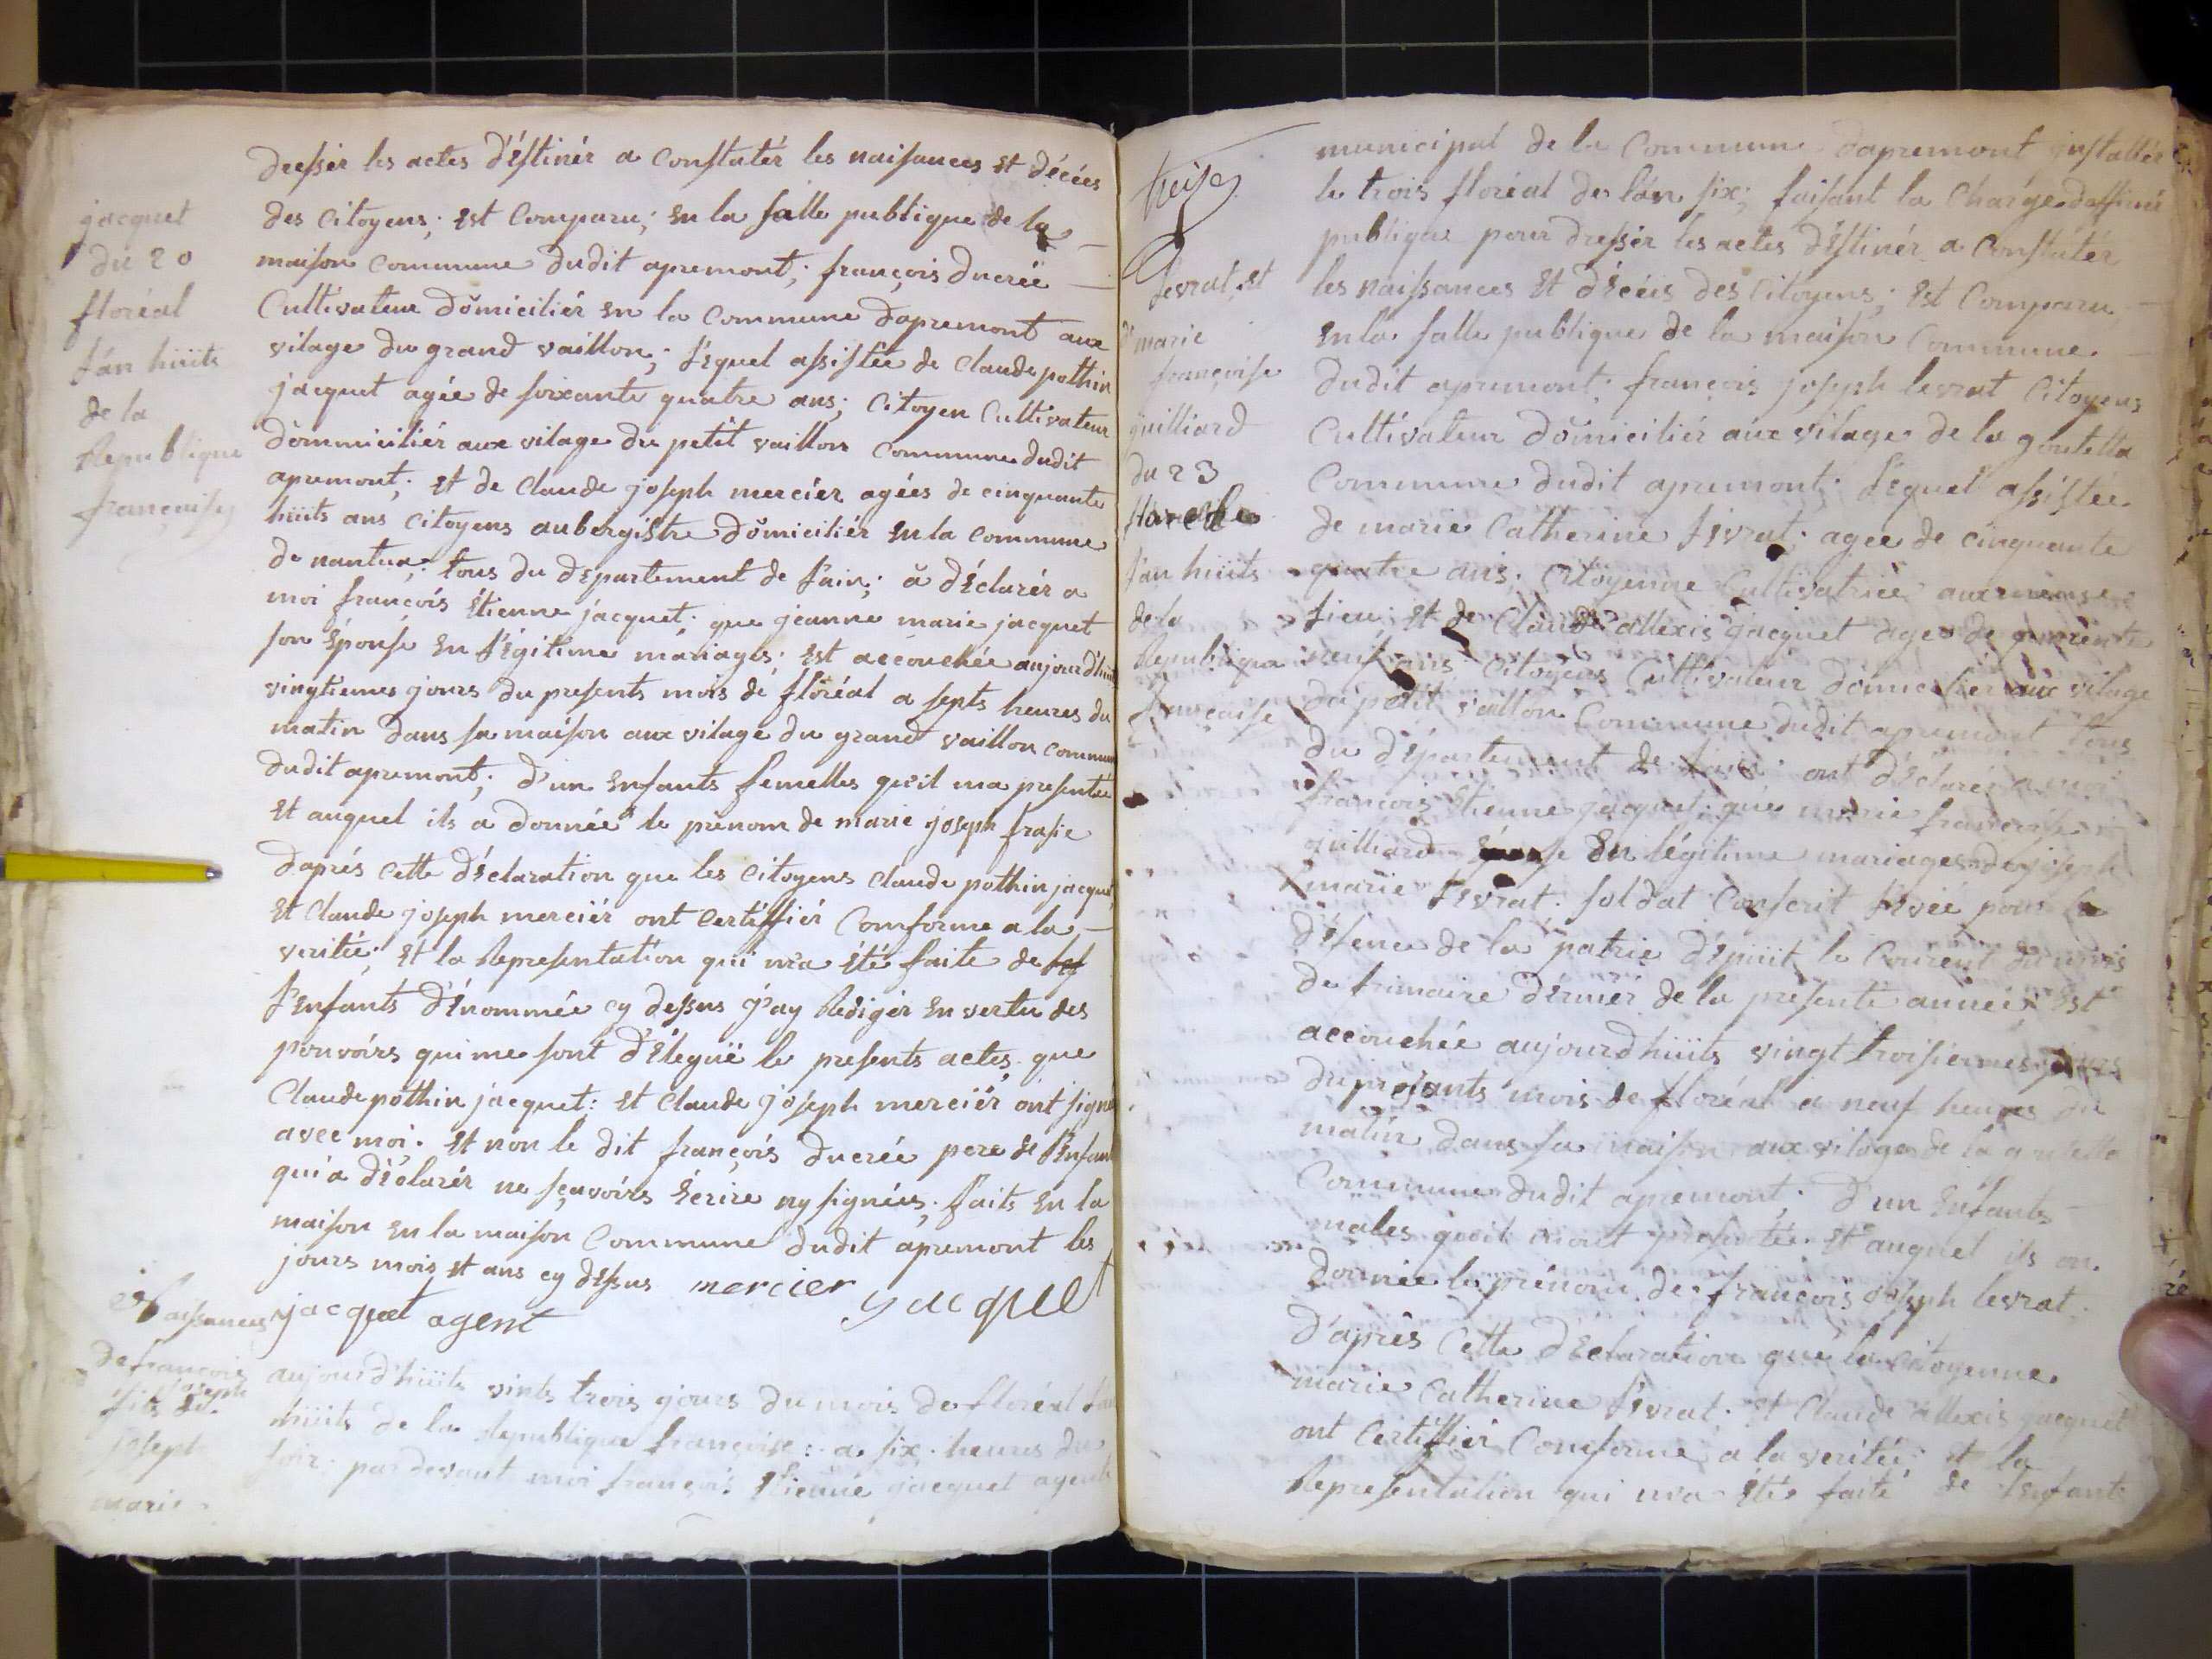 jacquet
du 20
floréal
l'án hüits
de la
Republique
françaises
dresser les actes d'éstinér a Constatér les naisances Et décées
des Citoyens; Est Comparu; En la salle publique de la
maison Commune dudit apremont; françois ducrée
Cultivateur dŏmiciliér En la Commune dapremont aux
vilage du grand vaillon; léquel assistée de Claude pothin
jacquet agée de soixante quatre ans; Citoyen Cultivateur
dŏmmiciliér aux vilage du petit vaillon Commune dudit
apremont; Et de Claude joseph merciér agées de cinquante
hüits ans Citoyens aubergistre dŏmiciliér En la Commune
de nantua; tous du département de l'ain; à déclarér a
moi françois Étienne jacquet; que jeanne marie jacquet
son Épouse En légitime mariages; Est accouchée aujourd'hui
vingtiemes jours du presents mois de floréal a septs heures du
matin dans sa maison aux vilage du grand vaillon commun
dudit apremont; d'un Enfants femelles qu'il ma presentée
Et auquel ils a donnée le prenom de marie joseph frasie
d'aprés cette déclaration que les Citoyens Claude pothin jacquet
Et Claude joseph merciér ont Certiffiér Comforme a la
veritée; Et la Representation qui m'a Été faite de
l'Enfants dénommée cy dessus J'ay Redigér En vertu des
pouvoirs qui me sont délegué le presents actes que
Claude pothin jacquet: Et Claude joseph merciér ont signé
avec moi. Et non le dit françois ducrée pere de l'Enfant
qui a déclarér ne sçavoirs Écrire ny signées; faits En la
maison En la maison Commune dudit apremont les
jours mois Et ans cy dessus mercier jacquet
jacquet agent
Naissances
de françois
joseph
fils de
joseph
marie
aujourd'hüits vints trois jours du mois de floréal l'an
hüits de la Republique françoise: a six heures du
soir; par devant moi françois Étienne jacquet agent
treise
levrat, et
de marie
françoise
guilliard
du 23
l'an hüits
de la
Republique
française
municipal de la Commune dapremont installér
le trois floréal de l'án six; faisant la Charge d'officié
publique pour dressér les actes d'éstinér a Constatér
les naissances Et décéis des Citoyens; Est Comparu
En la salle publique de la maison Commune
dudit apremont; françois joseph levrat Citoyens
Cultivateur dŏmiciliér aux vilage de la goutella
Commune dudit apremont; léquel assistée
de marie Catherine lévrat; agee de cinquante
quatre ans; Citoyenne Cultivatrice aux mêmes
lieu; Et de Claude allexis jacquet agée de quarente
neuf ans Citoyens Cultivateur aux vilage
du petit vaillon Commune dudit apremont tous
du département de l'ain; ont déclarér a moi
françois Étienne jacquet; que marie françoise
guilliard Épouse En légitime mariages de joseph
marie lévrat; soldat Conscrit lévée pour la
défence de la patrie dépuit le Courent du mois
de frimaire dérniér de la présente année Est
accouchée aujourd'hüits vingt troisiemes jours
du présants mois de floréal a neuf heures du
matin dans sa maison aux vilage de la goutella
Commune dudit apremont; d'un Enfants
males qu'il m'ont présentée Et auquel ils on
donnée le prénom de françois joseph levrat.
D'aprés Cette déclaration que la Citoyenne
marie Catherine lévrat; Et Claude allexis jacquet
ont Certiffiér Comforme a la veritée; Et la
Representation qui m'a Étée faite de l'Enfants